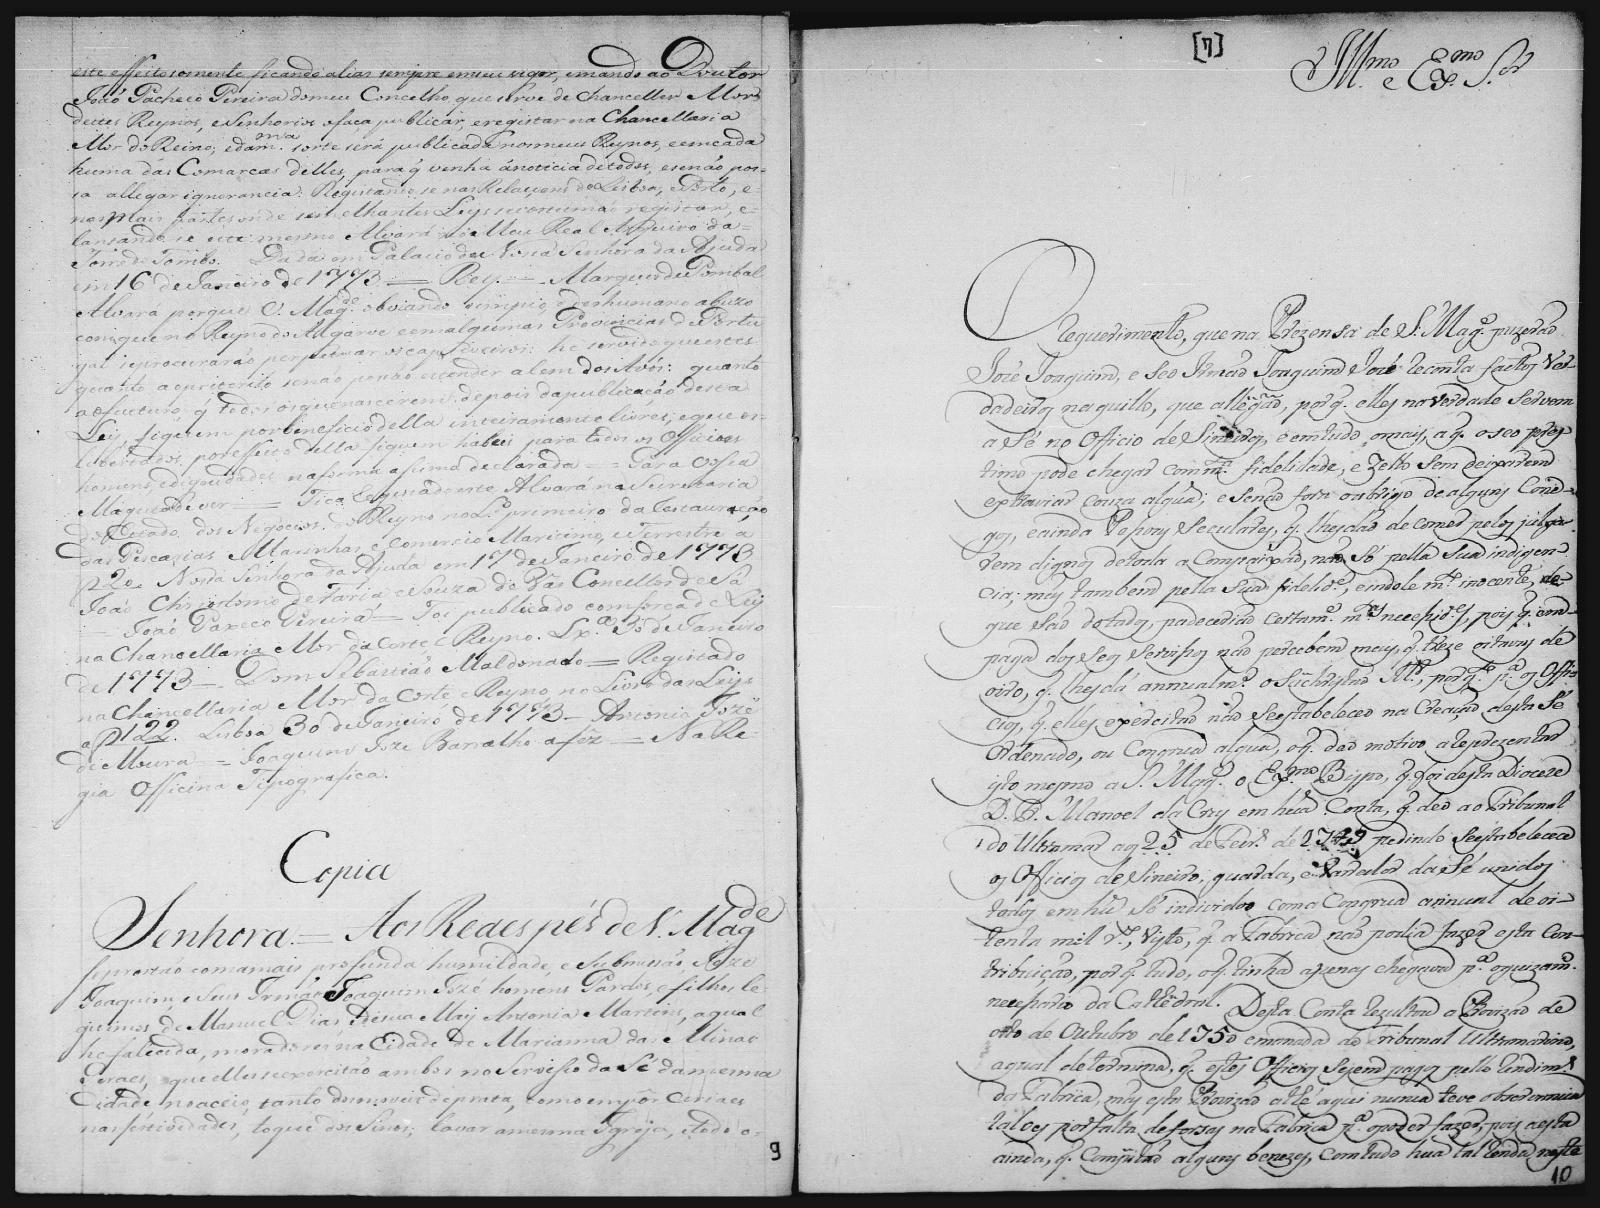 este effeito somente ficando alias sempre em seu vigor, e mando ao Doutor
João Pacheco Pereira do meu Concelho, que serve de Chanceller Mor
destes Reynos, e Senhorios o faça publicar, e registar na Chancellaria
Mor do Reino; e da m.ma sorte será publicada nos meus Reynos, e em cada
huma das Comarcas delles, para q̃ venha á noticia de todos, e se não pos=
sa allegar ignorancia: Registando-se nas Relaçoens de Lisboa, e Porto, e
nas mais partes onde semelhantes Leys se costumão registar, e
lansando-se este mesmo Alvará no Meu Real Arquivo da
Torre do Tombo. Dada em Palacio de Nossa Senhora da Ajuda
em 16 de Janeiro de 1773 = Rey = Marquez de Pombal
Alvará porque V. Mag.de obviando o impio, e deshumano abuzo
com que no Reyno do Algarve e em algumas Provincias de Portu
gal se procurarão perpetuar os captiveiros: he servido que estes
quanto ao preterito se não possão estender alem dos Avós: quanto
ao futuro, q̃ todos os que nascerem depois da publicação desta
Ley, fiquem por beneficio della inteiramente livres; e que os
libertados por effeito della fiquem habeis para todos os Officios
honras, e dignidades na forma assima declarada = Para Vossa
Magestade ver = Fica Registado este Alvará na Secretaria
de Estado dos Negocios do Reyno no L.o primeiro da Restauração
das Pescarias Marinhas, e Comercio Maritimo, e Terrestre a
f 20. Nossa Senhora da Ajuda em 17 de Janeiro de 1773
João Chrisostomo de Faria e Souza de Vas Concellos de Sá
= João Paxeco Pereira = Foi publicado com força de Ley
na Chancellaria Mor da Corte, e Reyno. Lx.a 30 de Janeiro
de 1773 = Dom Sebastião Maldonado = Registado
na Chancellaria Mor da Corte e Reyno no Livro das Leys
a f 122. Lisboa 30 de Janeiro de 1773 = Antonio José
de Moura = Joaquim Joze Barralho a fez = Na Re
gia Officina Tipografica.
Copia
Senhora = Aos Reaes pés de V. Mag.de
se prostão com a mais profunda humildade, e Submissão, Joze
Joaquim, e Seus Irmão Joaquim José homens Pardos, e filhos le
gitimos de Manuel Dias, e de sua May Antonia Martins, a qual
he falecida, moradores na Cidade de Marianna das Minas
Geraes, que elles se exercitão ambos no Serviço da Sé da mesma
Cidade no aceio, tanto dos moveis de prata, como em pôr Ceriaes
nas festividades, toque dos Sinos, lavar a mesma Igreja, e todo o=
9
[7]
Ill.mo e Ex.mo S.or
O Requerimento, que na Prezensa de S. Mag.e puzerão
José Joaquim, e Seo Irmão Joaquim José reconta factos Ver
dadeiros naquillo, que allegão, porq̃. elles na verdade Servem
a Sé no Officio de Sineiros, e em tudo o mais, a q̃. o seo pres
timo pode chegar com m.ta fidelidade, e Zello Sem deixarem
extraviar couza algũa; e senão fora o abrigo de alguns Cone=
gos, e ainda Pessoas Seculares, q̃. lhes dão de comer pelos julga
rem dignos de toda a Compaixão, não Só pella Sua indigen
cia; mas tambem pella Sua fidelid.e, e indole m.to inocente, de
que São dotados, padecerião certam.e m.tas necessid.es, pois q̃. em
paga dos Seos Servisos não percebem mais, q̃. treze oitavas de
oiro, q̃. lhes dá annualm.e o Suchristão M.r, porq̃. p.a os Offi=
cios, q̃. elles exercitão não Se estabeleceo na Creação desta Sé
Ordenado, ou Congrua algũa, o q̃. deo motivo a reprezentar
isto mesmo a S. Mag.e o Ex.mo Bispo, q̃. foi desta Dioceze
D. F. Manoel da Cruz em hũa Conta, q̃. deo ao Tribunal
do Ultramar aos 25 de Fevr.o de 1749 pedindo Se estabelecece
os Officios de Sineiro, guarda, e Varredor da Sé unidos
todos em hũ Só individuo com a Congrua annual de oi=
tenta mil r.s, visto, q̃. a Fabrica não podia fazer esta Con
tribuição, porq̃. tudo, o q̃. tinha apenas chegava p.a o quizam.e
necessario da Cathedral. Desta Conta rezultou a Provizão de
oito de Outubro de 1750 emanada do Tribunal Ultramarino,
a qual determina, q̃. estes Officios Sejam pagos pello rendim.to
da Fabrica, mas esta Provizão athe aqui nunca teve observancia
talvez por falta de forsas na Fabrica p.a o poder fazer, pois a esta
ainda, q̃. Competão alguns benezes, Comtudo hũa tal renda neste
10